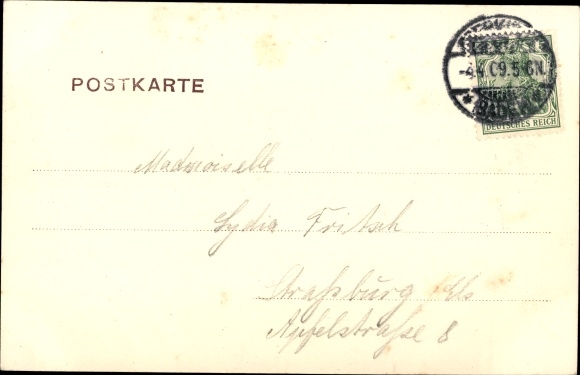 POSTKARTE
-4.4.09.5-6N.
* BADEN *
DEUTSCHES REICH
Mademoiselle
Lydia Fritsch
Straßburg Els
Apfelstraße 8